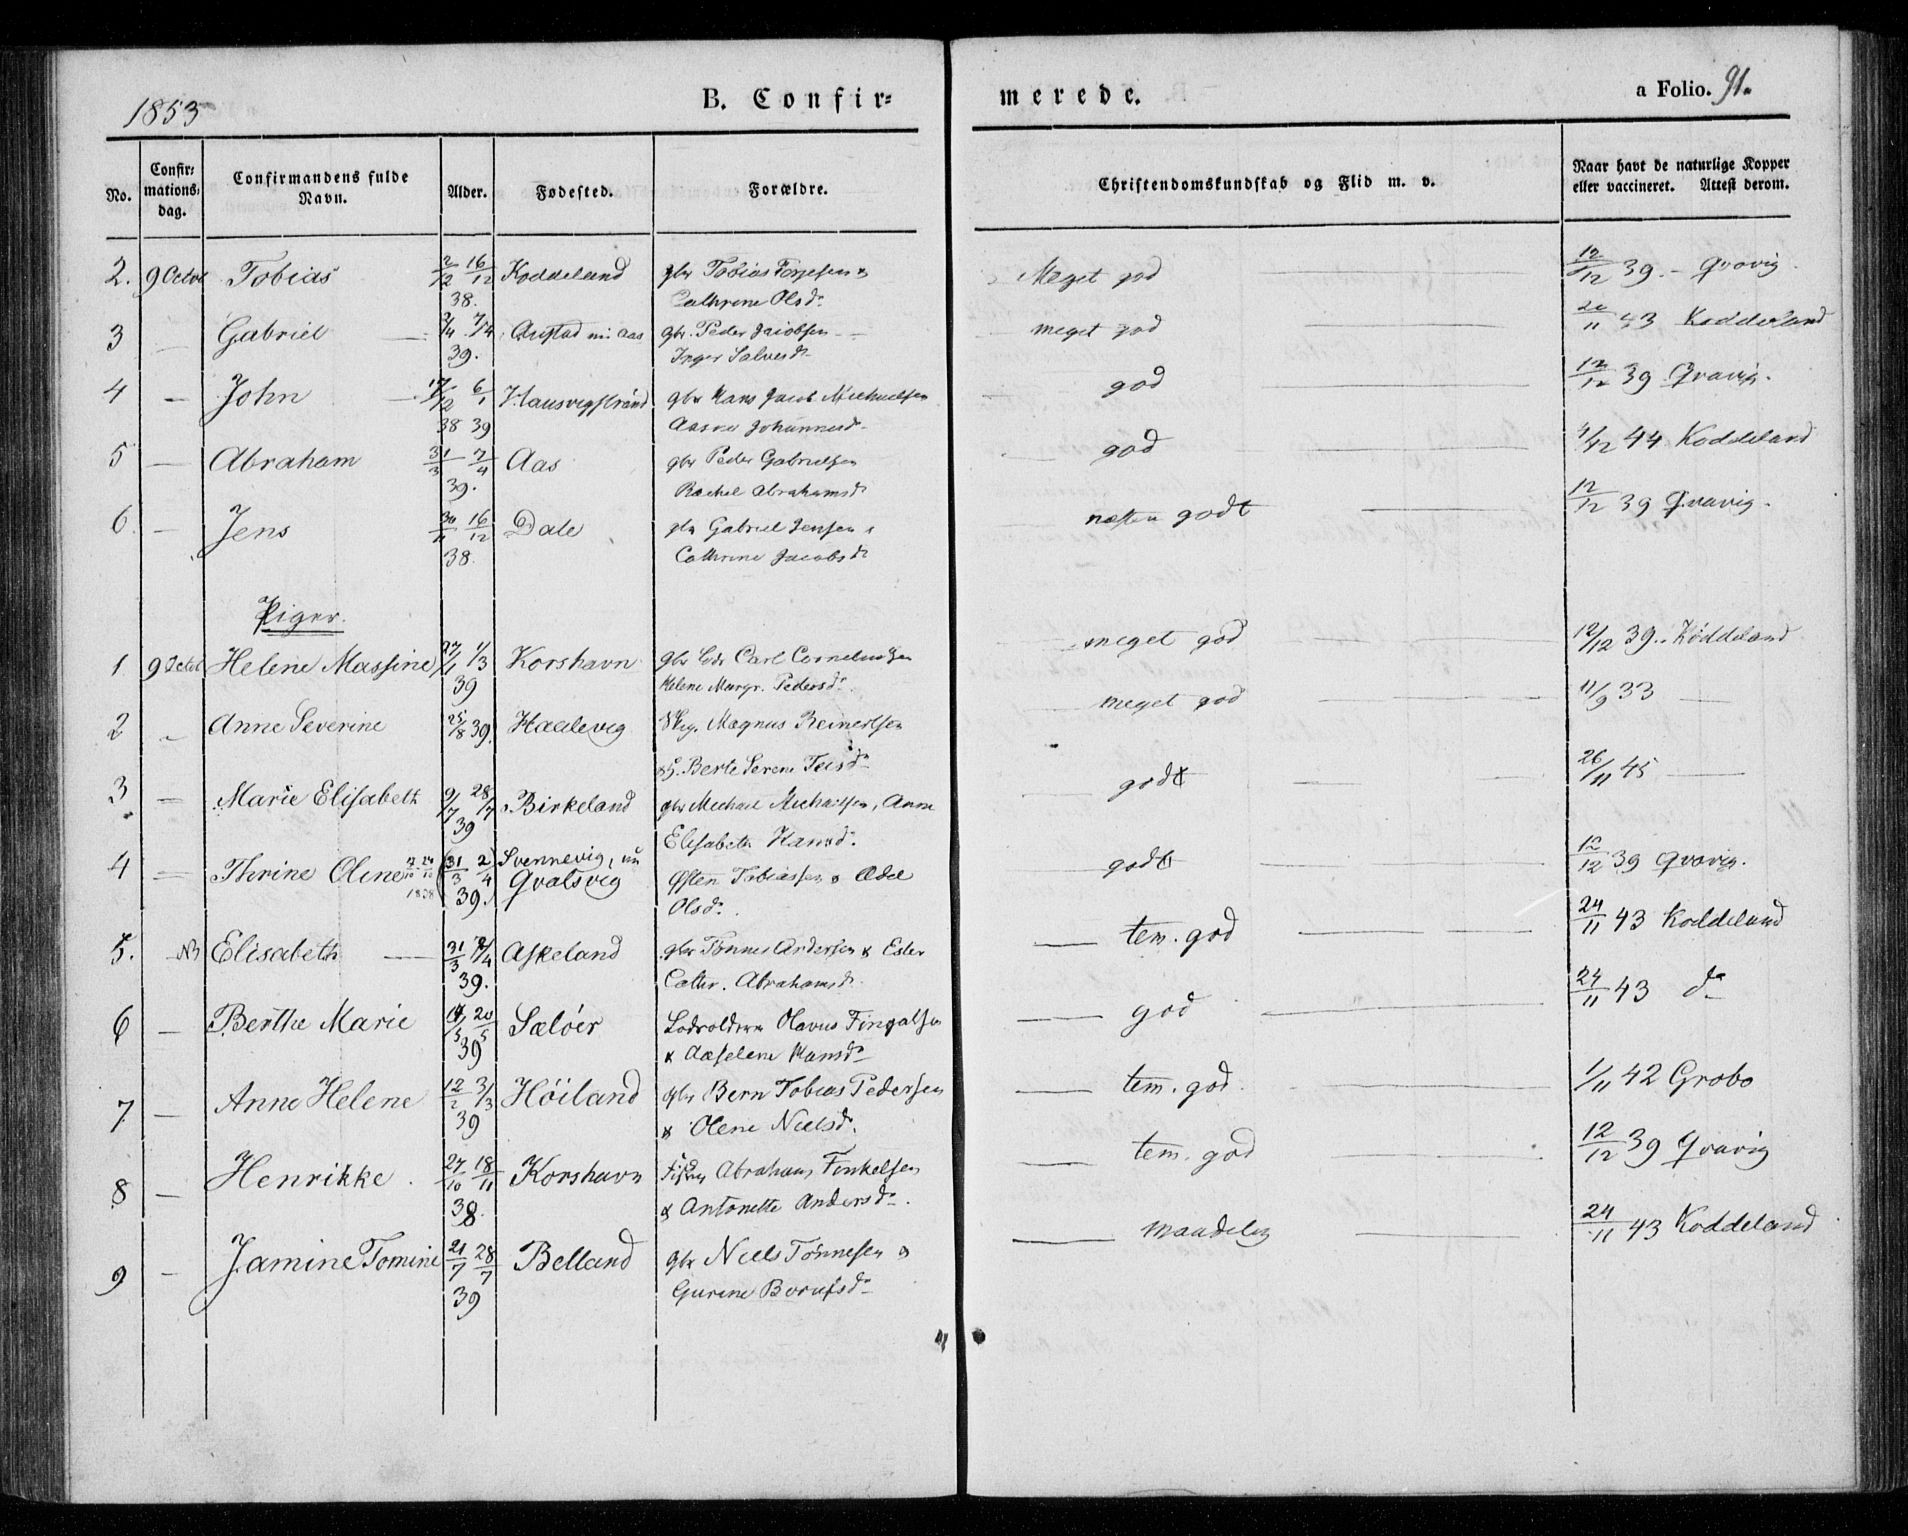 1853
B. Confirmerede.
a Folio. 91.
No.
Confirmationsdag.
Confirmandens fulde Navn.
Alder.
Fødested.
Forældre.
Christendomskundskab og Flid m. v.
Naar havt de naturlige Kopper eller vaccineret. Attest derom.
2. 9 Octbr Tobias 2/12 16/12 38. Koddeland gbr Tobias Torjesen &
Cathrine Olsdr
Meget god
12/12 39. - Qvavig.
3 — Gabriel 2/4 7/4 39. Augstad nu Aas gbr. Peder Jacobsen
Inger Salvesdr
meget god
20/11 43 Koddeland
4 - John 17/12 6/1 38 39 Hausvigstrand gbr Hans Jacob Michaelsen
Aasne Johannesdr
god
12/12 39 Qvavig.
5 — Abraham 31/3 7/4 39. Aas gbr Peder Gabrielsen
Rachel Abrahamsdr
god
4/12 44 Koddeland
6 - Jens 30/11 16/12 38. Dale gbr Gabriel Jensen &
Cathrine Jacobsdr
næsten godt
12/12 39 Qvavig.
Piger.
1 9 Octbr Helene Massine 27/1 1/3 39 Korshavn gbr Lods Carl Corneliussen
Helene Margr. Pedersdr.
meget god
12/12 39. Koddeland
2 Anne Severine 25/8 39. Haalevig Magnus Reinertsen
Berte Serene Teisdr
meget god
11/9 33 —
3 — Marie Elisabeth 9/7 28/7 39 Birkeland gbr Michael Michaelsen, Anne
Elisabeth Hansdr.
godt
26/11 45 —
4 — Thrine Oline 1838 (31/3 2/4 39.) Svennevig, nu
Qvalsvig Østen Tobiassen & Ædel
Olsdr.
godt
12/12 39 Qvavig.
5. Elisabeth — 31/3 7/4 39. Askeland gbr Tønnes Andersen & Ester
Cathr. Abrahamsdr
tem. god
24/11 43 Koddeland
6 — Berthe Marie 9/5 20/5 39 Sæløer Lodsoldermand Olavus Fingalsen
& Aaselene Hansdr
god
24/11 43 do
7 — Anne Helene 12/2 31/3 39 Høiland gbr Bern Tobias Pedersen
& Olene Nielsdr.
tem. god
1/11 42 Grobo
8 — Henrikke. 27/10 18/11 38. Korshavn Fisker Abraham Finkelsen
& Antonette Andersdr.
tem. god
12/12 39 Qvavig
9 - Jamine Tomine 21/7 28/7 39 Belland gbr Niels Tønnesen &
Gurine Borufsdr
maadelig
24/11 43 Koddeland